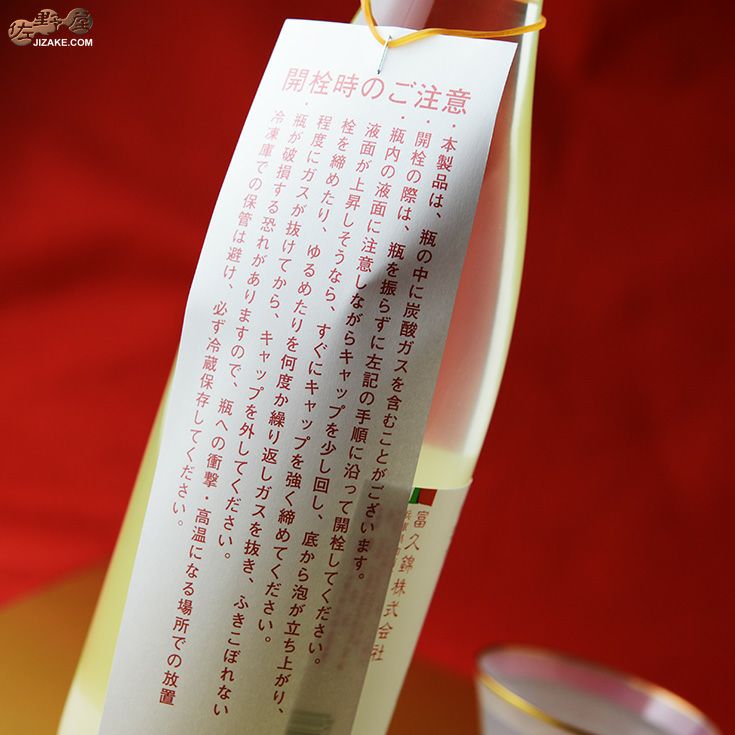 佐野屋
JIZAKE.COM
開栓時のご注意
・本製品は、瓶の中に炭酸ガスを含むことがございます。
・開栓の際は、瓶を振らずに左記の手順に沿って開栓してください。
・瓶内の液面に注意しながらキャップを少し回し、底から泡が立ち上がり、
液面が上昇しそうなら、すぐにキャップを強く締めてください。
栓を締めたり、ゆるめたりを何度か繰り返しガスを抜き、ふきこぼれない
程度にガスが抜けてから、キャップを外してください。
・瓶が破損する恐れがありますので、瓶への衝撃・高温になる場所での放置
冷凍庫での保管は避け、必ず冷蔵保存してください。
富久錦株式会社